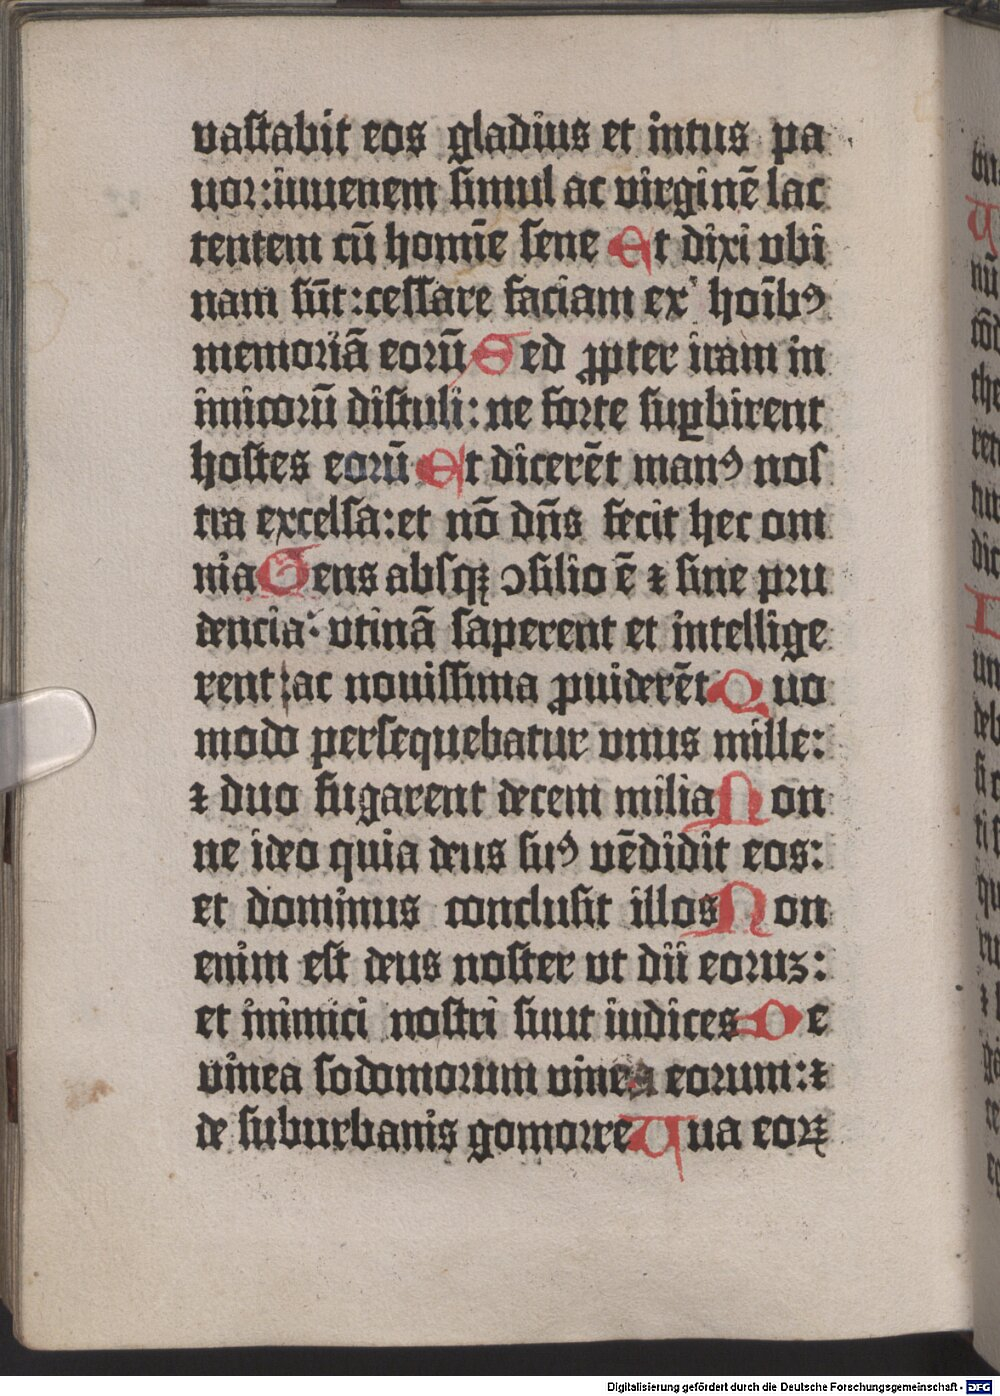 vastabit eos gladius et intus pa
uor: iuuenem simul ac virginē lac
tentem cū homīe sene Et dixi vbi
nam sūt: cessare faciam ex hoībꝰ
memoriā eorū Sed ꝓpter iram in
imicorū distuli: ne forte suꝑbirent
hostes eorū Et dicerēt manꝰ nos
tra excelsa: et nō dn̄s fecit hec om
nia Gens absqꝫ ↄsilio ē ⁊ sine pru
dencia: vtinā saperent et intellige
rent: ac nouissima ꝓuiderēt Quo
modo persequebatur vnus mille:
⁊ duo fugarent decem milia Non
ne ideo quia deus suꝰ vēdidit eos:
et dominus conclusit illos Non
enim est deus noster vt dii eoruz:
et inimici nostri sunt iudices De
vinea sodomorum vinea eorum: ⁊
de suburbanis gomorre Uua eoꝝ
Digitalisierung gefördert durch die Deutsche Forschungsgemeinschaft - DFG